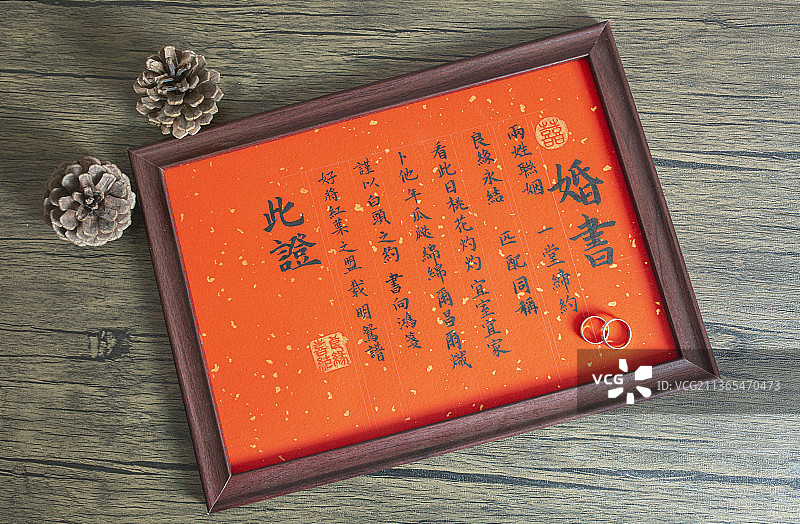 囍
婚書
兩姓聯姻 一堂締約
良緣永結 匹配同稱
看此日桃花灼灼 宜室宜家
卜他年瓜瓞綿綿 爾昌爾熾
謹以白頭之約 書向鴻箋
好將紅葉之盟 载明鴛譜
此證
良緣喜結
VCG 视觉中国
ID:VCG211365470473